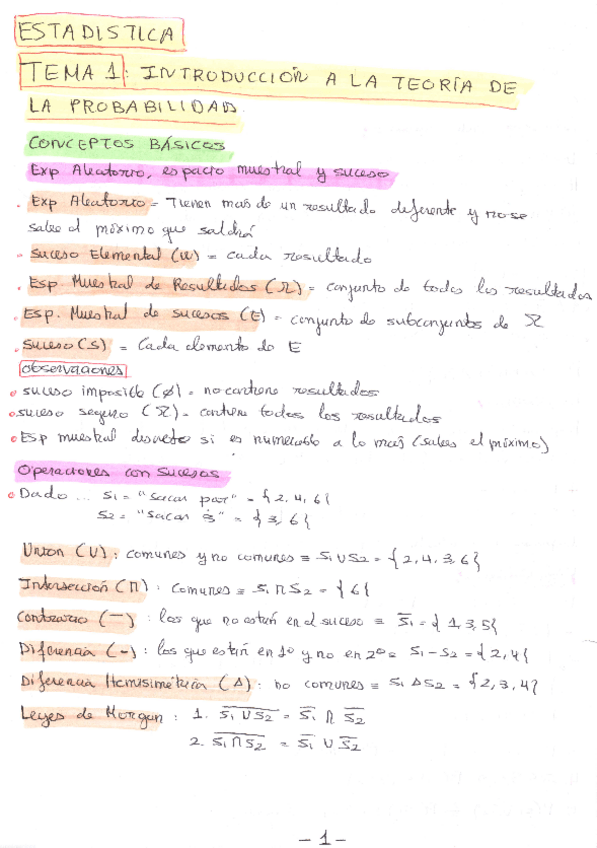 ESTADISTICA
TEMA 1: INTRODUCCIÓN A LA TEORÍA DE
LA PROBABILIDAD.
CONCEPTOS BÁSICOS
Exp Aleatorio, espacio muestral y suceso
. Exp Aleatorio = Tienen mas de un resultado diferente y no se
sabe el próximo que saldrá
. Suceso Elemental (w) = cada resultado
. Esp Muestral de Resultados (Ω) = conjunto de todos los resultados
. Esp. Muestral de sucesos (E) = conjunto de subconjuntos de Ω
. Suceso (S) = Cada elemento de E
Observaciones
o suceso imposible (∅) = no contiene resultados
o suceso seguro (Ω) = contiene todos los resultados
o Esp muestral discreto si es numerable a lo mas (sabes el próximo)
Operaciones con sucesos
o Dado ... S1 = "sacar par" = {2, 4, 6}
S2 = "sacar 3̇" = {3, 6}
Union (U) : comunes y no comunes ≡ S1 U S2 = {2, 4, 3, 6}
Intersección (∩) : comunes ≡ S1 ∩ S2 = {6}
Contrario (—) : los que no están en el suceso ≡ S̅1 = {1, 3, 5}
Diferencia (-) : los que están en 1º y no en 2º ≡ S1 - S2 = {2, 4}
Diferencia Hemisimétrica (Δ) : no comunes ≡ S1 Δ S2 = {2, 3, 4}
Leyes de Morgan : 1. \overline{S1 U S2} = \overline{S1} ∩ \overline{S2}
2. \overline{S1 ∩ S2} = \overline{S1} U \overline{S2}
- 1 -